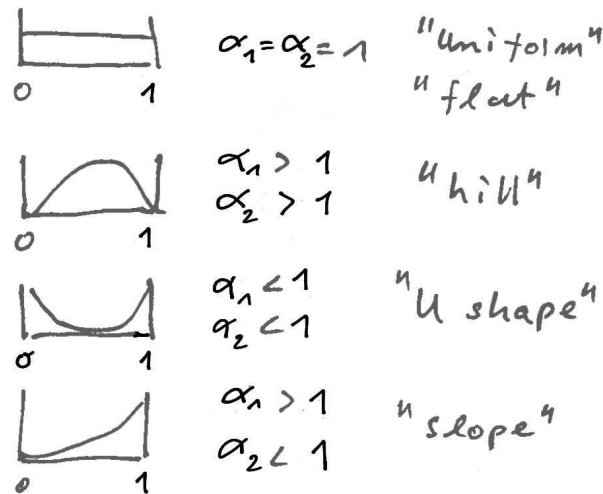 α₁ = α₂ = 1 "uniform"
"flat"
0 1
α₁ > 1
α₂ > 1 "hill"
0 1
α₁ < 1
α₂ < 1 "U shape"
0 1
α₁ > 1
α₂ < 1 "slope"
0 1